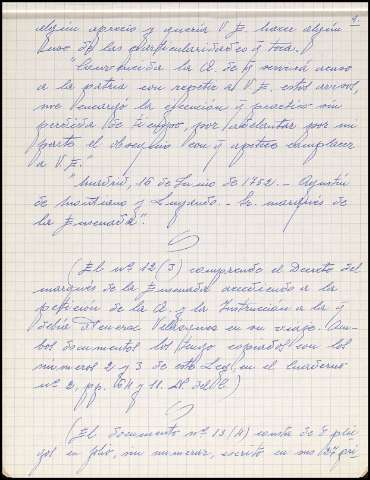 9.
algún aprecio y quería V. E. hacer algún
uso de las particularidades q toca.
"Convencida la A. de q servirá acaso
a la patria con repetir al V. E. estos avisos,
me encargó la ejecución q practico sin
pérdida de tiempo, por adelantar por mi
parte el obsequio con q apetece complacer
a V. E."
"Madrid, 16 de Junio de 1752.- Agustín
de Montiano y Luyando.- Sr. marqués de
la Ensenada".
(El nº 12 (3) comprende el Decreto del
marqués de la Ensenada accediendo a la
petición de la A. y la Instrucción a la q
debía atenerse Velázquez en su viage. Am-
bos documentos los tengo copiados con los
números 2 y 3 de este Leg. en el Cuaderno
nº 2, pp. 64 y 18.
(El documento nº 13 (4) consta de 8 plie-
gos en folio, sin numerar, escrito en sus 27 pri-